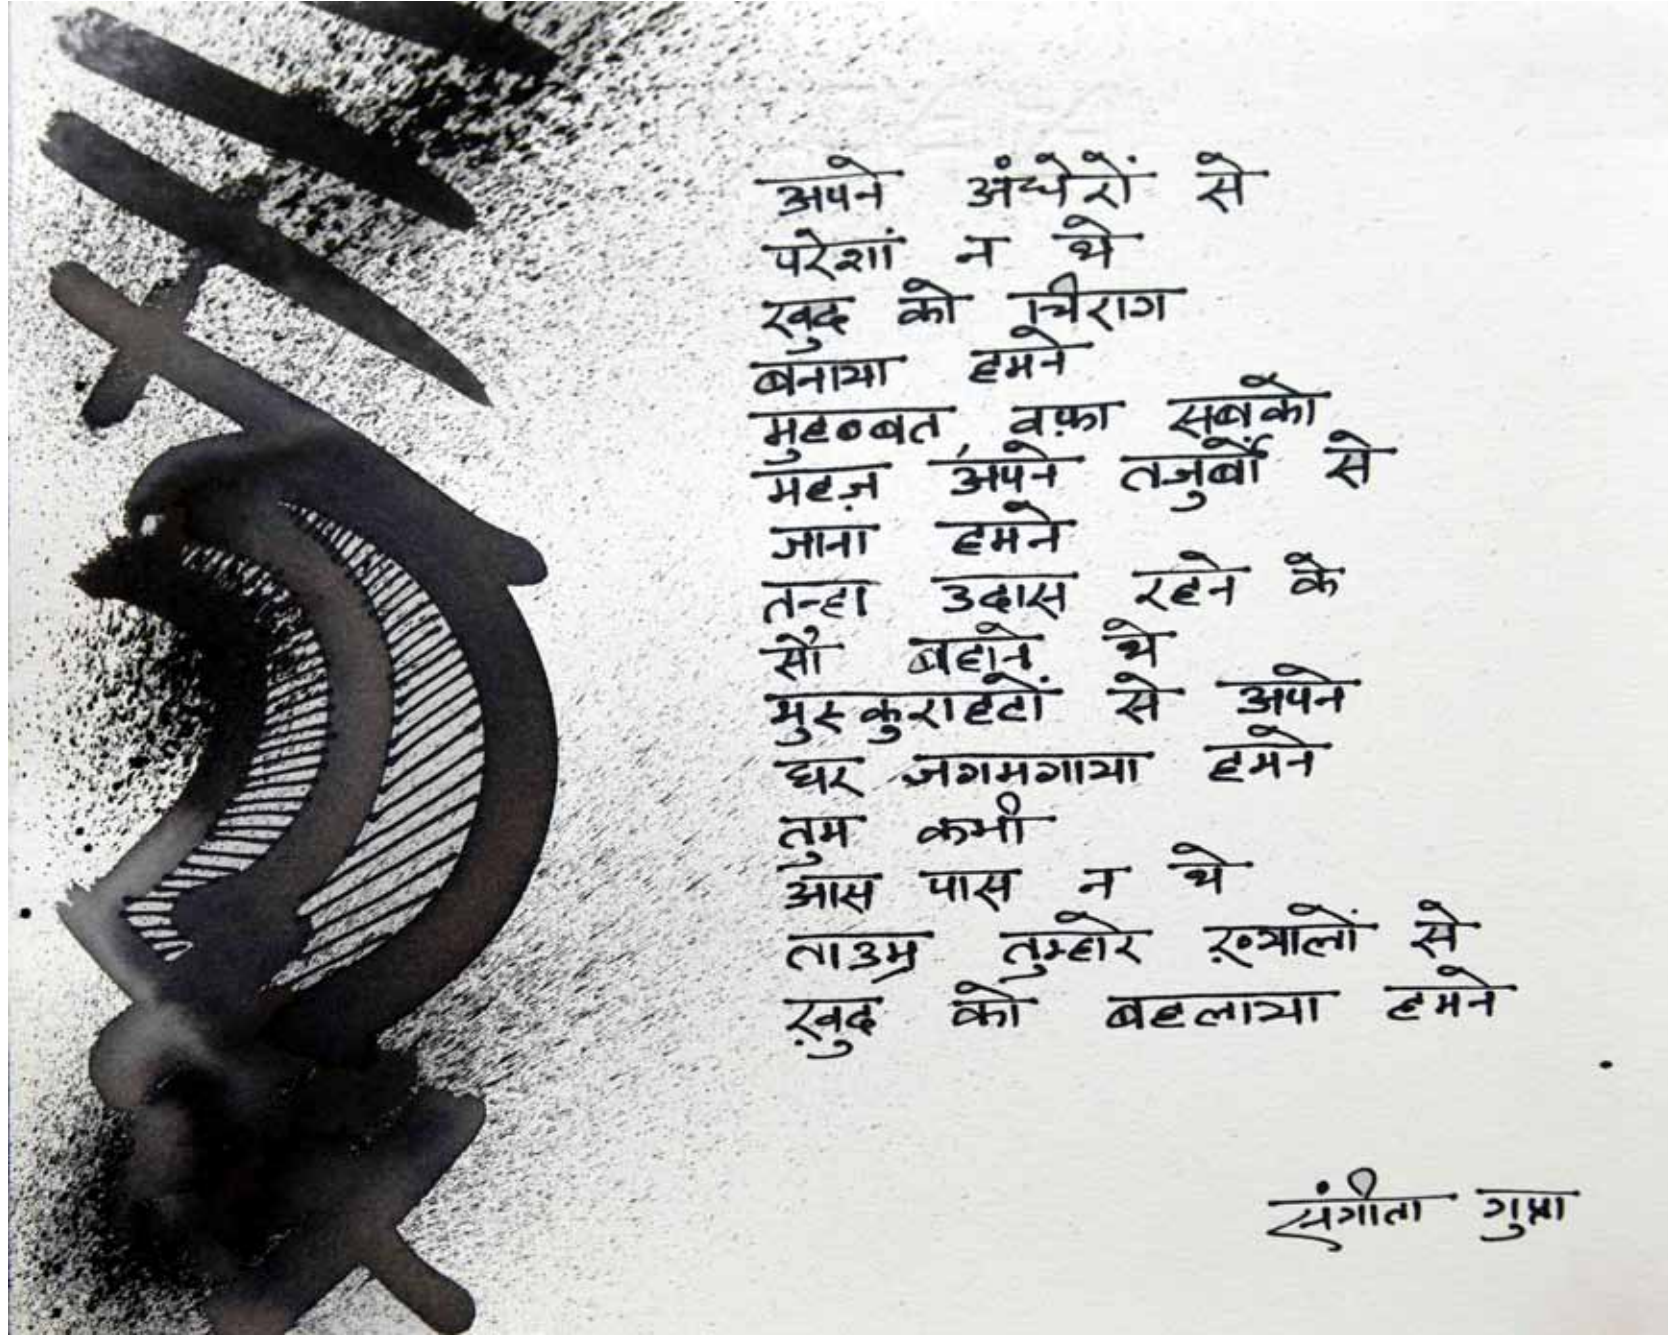 अपने अंधेरों से
परेशां न थे
खुद को चिराग
बनाया हमने
मुहब्बत, वफ़ा सबको
महज़ अपने तजुर्बों से
जाना हमने
तन्हा उदास रहने के
सौ बहाने थे
मुस्कुराहटों से अपने
घर जगमगाया हमने
तुम कभी
आस पास न थे
ताउम्र तुम्हारे ख़्यालों से
ख़ुद को बहलाया हमने
संगीता गुप्ता